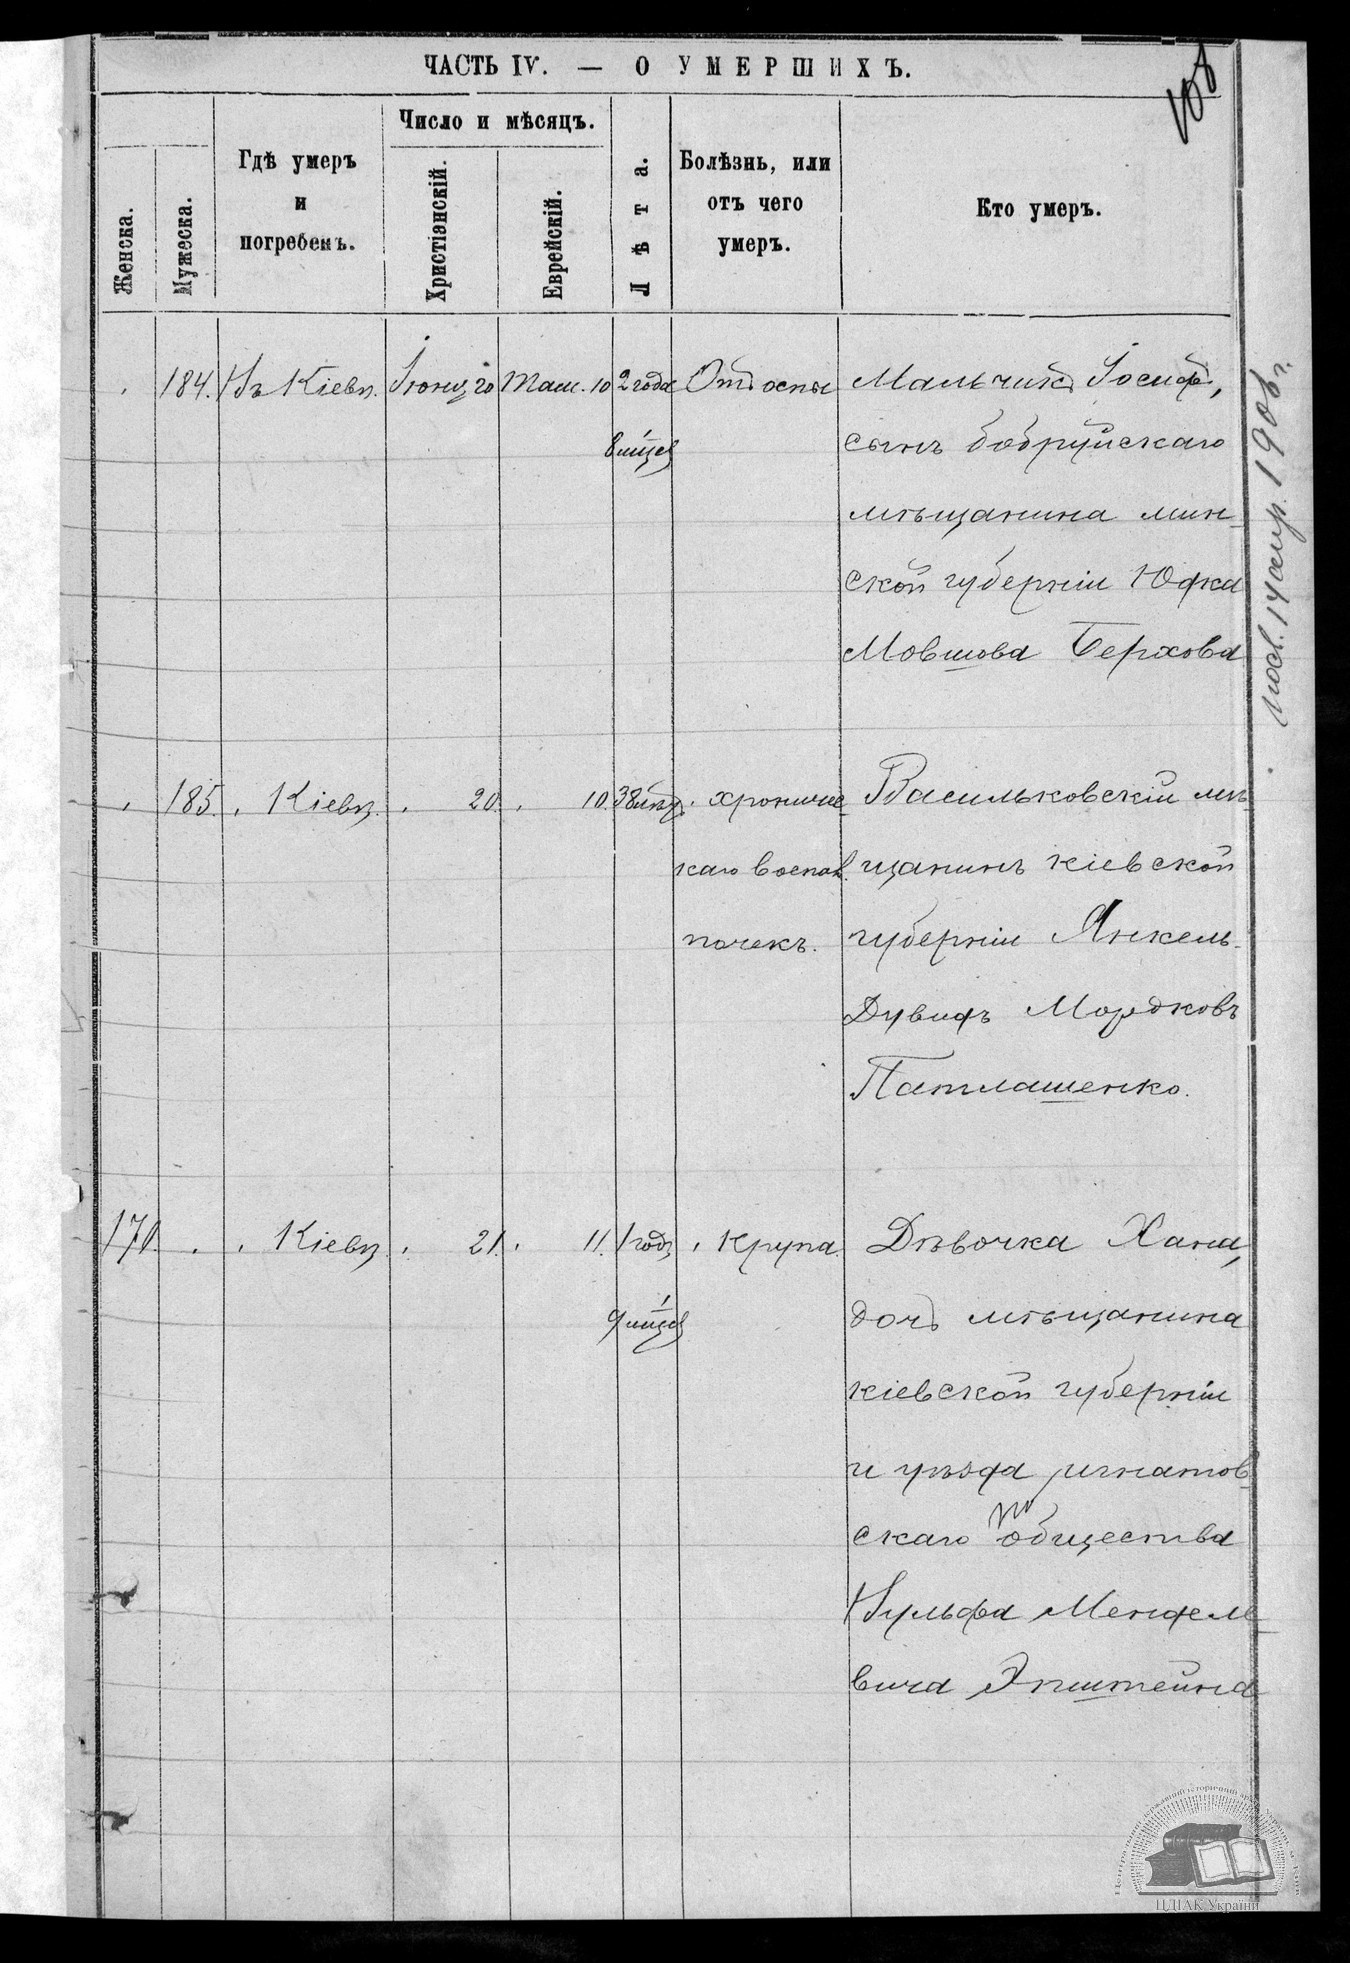 ЧАСТЬ IV. — О УМЕРШИХЪ.
108
Женска.
Мужеска.
Гдѣ умеръ
и
погребенъ.
Число и мѣсяцъ.
Христіэнскій.
Еврейскій.
Лѣта.
Болѣзнь, или
отъ чего
умеръ.
Кто умеръ.
184. Въ Кіевѣ. Іюнь 20 Там. 10 2 года Отъ оспы Мальчикъ Іосифъ,
8 мѣсяц сынъ бобруйскаго
мѣщанина мин-
ской губерніи Юдка
Мовшова Берхова
185. Кіевѣ. 20. 10. 38 лѣтъ хроничес- Васильковскій мѣ-
каго воспал. щанинъ кіевской
почекъ. губерніи Янкель-
Дувидъ Мордковъ
Патлашенко.
170. Кіевѣ. 21. 11. 1 годъ Крупа. Дѣвочка Хана,
9 мѣсяц дочь мѣщанина
кіевской губерніи
и уѣзда игнатов-
скаго общества
Вульфа Менделе-
вича Эпштейна
14 апр. 1908 г.
ЦДІАК України